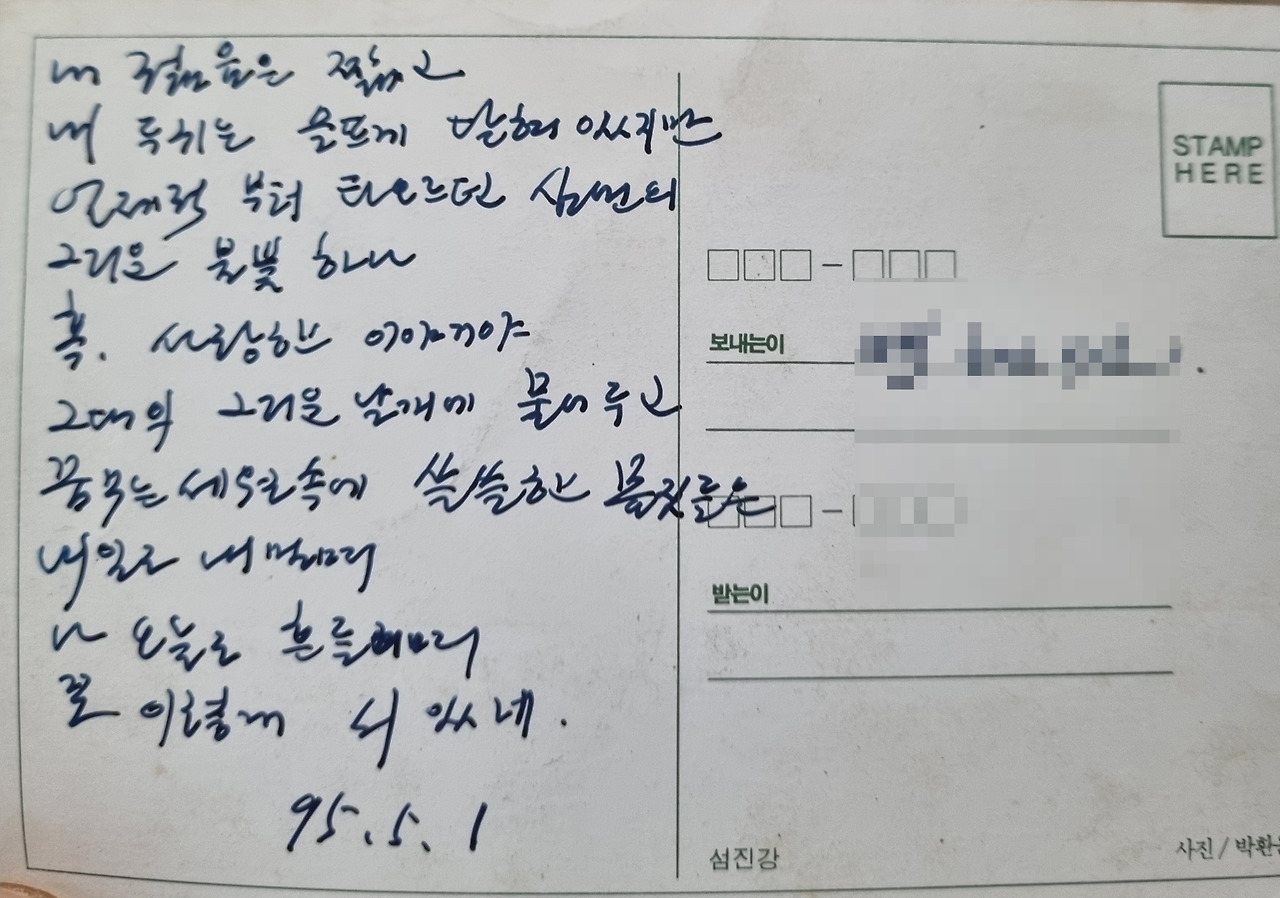 내 젊음은 짧고
내 두취는 슬프게 닫혀 있지만
언제적 부터 타오르던 심연의
그리운 불빛 하나
혹. 사랑한 이야기야
그대의 그리운 날개에 묻어두고
꿈꾸는 세월속에 쓸쓸한 몸짓들은
내일로 내밀며
나 오늘도 흔들리며
꼭 이렇게 서 있네.
95.5.1
STAMP
HERE
보내는이
받는이
섬진강
사진 / 박환